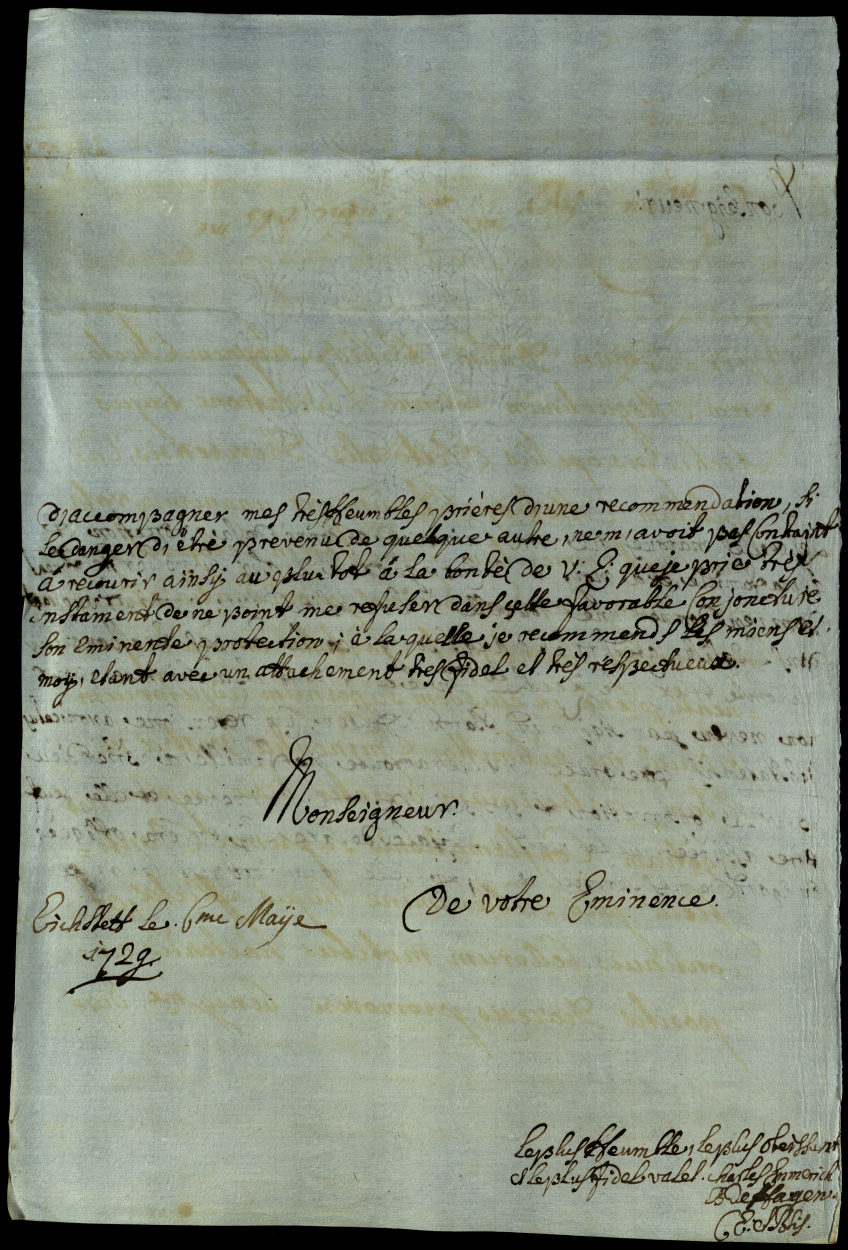 d'accompagner mes trésHeumbles priéres d'une recommendation, si
le danger d'étre prevenu de quelque autre, ne m'avoit pas Contraint
à récourir ainsy au plustot à la bonté de V: E: que je prie trés
instament de ne point me refuser dans cette favorable Conjoncture
son Eminente protection, à la quelle je recommends les miens et
moy, etant avec un attachement tres fidel et trés respectueux.
Monseigneur.
De votre Eminence.
Eichstett le 6me Maÿe
1729
le plus Heumble, le plus obeissant
et le plus fidel valet. Charles Emmerich
B de Hagen.